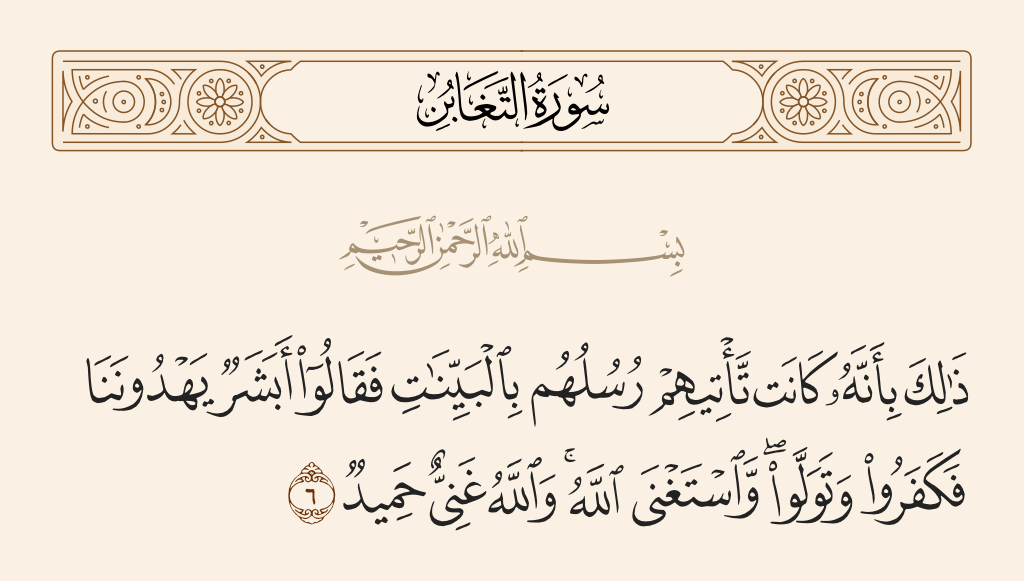 سُورَةُ التَّغَابُنِ
بِسْمِ ٱللَّهِ ٱلرَّحْمَٰنِ ٱلرَّحِيمِ
ذَٰلِكَ بِأَنَّهُۥ كَانَت تَّأْتِيهِمْ رُسُلُهُم بِٱلْبَيِّنَٰتِ فَقَالُوٓا۟ أَبَشَرٌ يَهْدُونَنَا
فَكَفَرُوا۟ وَتَوَلَّوا۟ ۖ وَّٱسْتَغْنَى ٱللَّهُ ۚ وَٱللَّهُ غَنِىٌّ حَمِيدٌ ٦